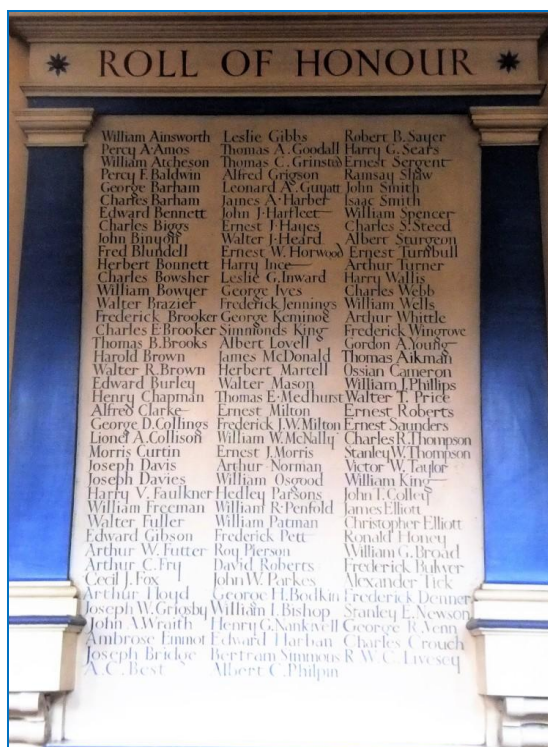 ROLL OF HONOUR
William Ainsworth
Percy A·Amos
William Atcheson
Percy F. Baldwin
George Barham
Charles Barham
Edward Bennett
Charles Biggs
John Binyon
Fred Blundell
Herbert Bonnett
Charles Bowsher
William Bowyer
Walter Brazier
Frederick Brooker
Charles E·Brooker
Thomas B. Brooks
Harold Brown
Walter R. Brown
Edward Burley
Henry Chapman
Alfred Clarke
George D. Collings
Lionel A. Collison
Morris Curtin
Joseph Davis
Joseph Davies
Harry V. Faulkner
William Freeman
Walter Fuller
Edward Gibson
Arthur W. Futter
Arthur C. Fry
Cecil J. Fox
Arthur
Joseph W. Grigsby
John A. Wraith
Ambrose Emmot
Joseph Bridge
A.C. Best
Leslie Gibbs
Thomas A. Goodall
Thomas C. Grinsted
Alfred Grigson
Leonard A. Guyatt
James A·Harber
John J·Harfleet
Ernest J·Hayes
Walter J·Heard
Ernest W. Horwood
Harry Ince
Leslie G. Inward
George Ives
Frederick Jennings
George Keminoe
Simmonds King
Albert Lovell
James McDonald
Herbert Martell
Walter Mason
Thomas E·Medhurst
Ernest Milton
Frederick J.W. Milton
William W. McNally
Ernest J. Morris
Arthur Norman
William Osgood
Hedley Parsons
William R·Penfold
William Patman
Frederick Pett
Roy Pierson
David Roberts
John W. Parkes
George H. Bodkin
William I. Bishop
Henry G. Nankivell
Edward Harban
Bertram Simmons
Albert C. Philpin
Robert B. Sayer
Harry G. Sears
Ernest Sergent
Ramsay Shaw
John Smith
Isaac Smith
William Spencer
Charles S. Steed
Albert Sturgeon
Ernest Turnbull
Arthur Turner
Harry Wallis
Charles Webb
William Wells
Arthur Whittle
Frederick Wingrove
Gordon A. Young
Thomas Aikman
Ossian Cameron
William J. Phillips
Walter T. Price
Ernest Roberts
Ernest Saunders
Charles R. Thompson
Stanley W. Thompson
Victor W. Taylor
William King
John T. Colley
James Elliott
Christopher Elliott
Ronald Honey
William G. Broad
Frederick Bulwer
Alexander Tick
Frederick Denner
Stanley E. Newson
George R. Venn
Charles Crouch
R.W.C. Livesey